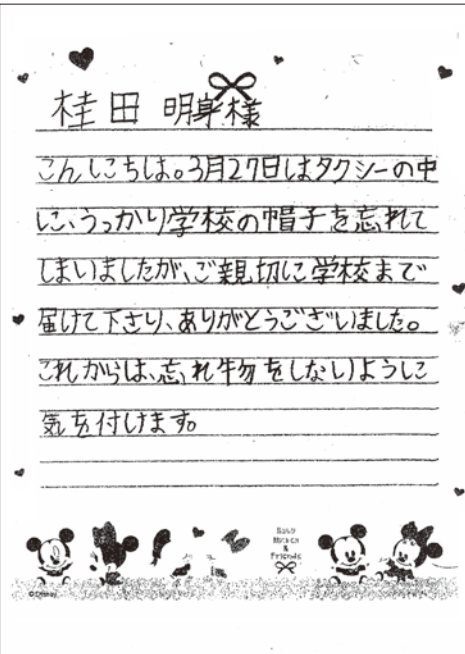 桂田 明身様
こんにちは。3月27日はタクシーの中
に、うっかり学校の帽子を忘れて
しまいましたが、ご親切に学校まで
届けて下さり、ありがとうございました。
これからは、忘れ物をしないように
気を付けます。
Baby
Mickey
&
Friends
©Disney